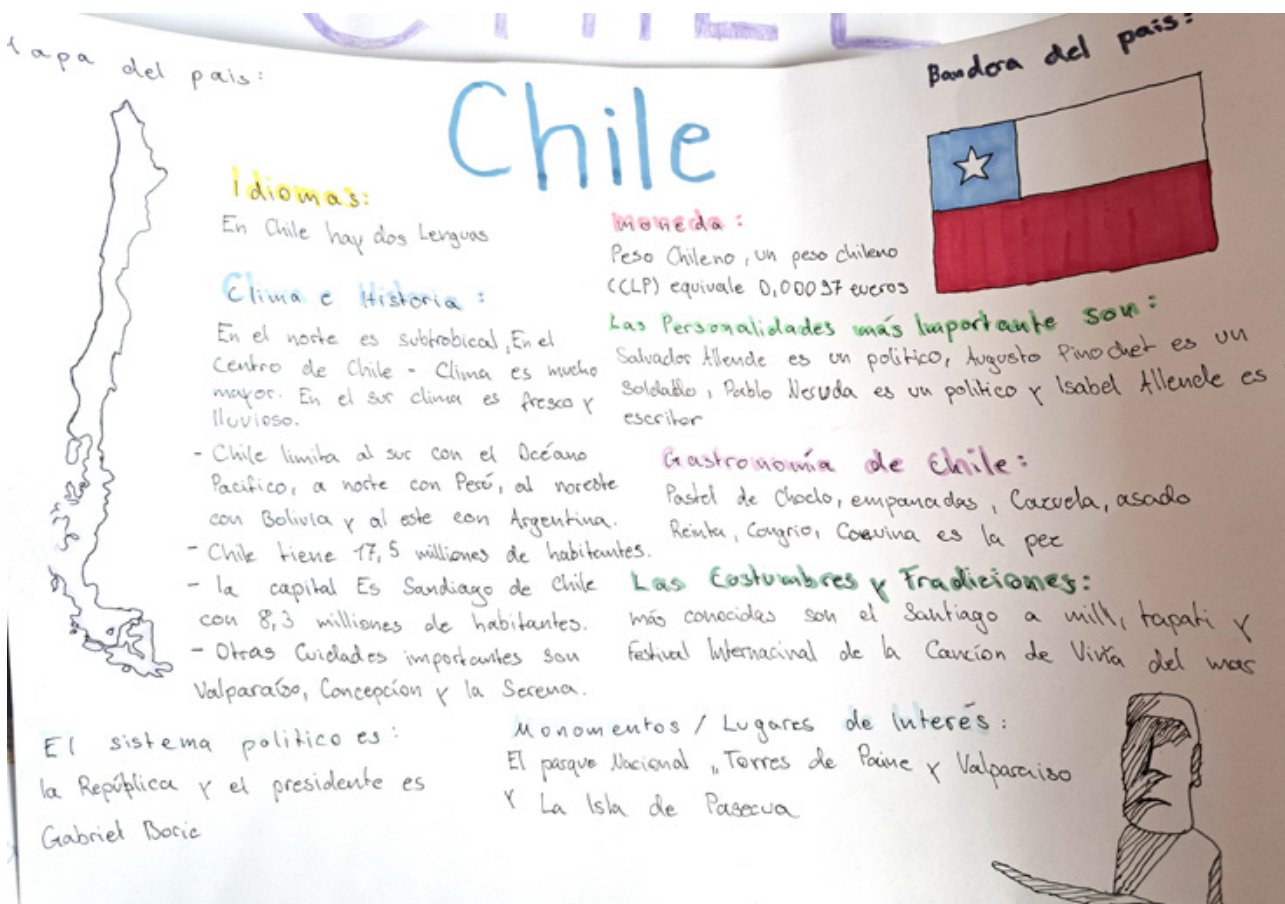 CHILE
apa del pais:
Bandera del pais:
Chile
Idiomas:
En Chile hay dos Lenguas
Clima e Historia :
En el norte es subtrobical, En el
Centro de Chile - Clima es mucho
mayor. En el sur clima es fresco y
lluvioso.
- Chile limita al sur con el Océano
Pacífico, a norte con Perú, al noreste
con Bolivia y al este con Argentina.
- Chile tiene 17,5 milliones de habitantes.
- la capital Es Sandiago de Chile
con 8,3 milliones de habitantes.
- Otras Cuidades importantes son
Valparaíso, Concepción y la Serena.
El sistema politico es:
la República y el presidente es
Gabriel Boric
moneda :
Peso Chileno, un peso chileno
(CLP) equivale 0,00097 eueros
Las Personalidades más Importante son :
Salvador Allende es un politico, Augusto Pinochet es un
Soldado, Pablo Neruda es un politico y Isabel Allende es
escritor
Gastronomía de Chile:
Pastel de Choclo, empanadas, Cazuela, asado
Reinta, Congrio, Corvina es la pez
Las Costumbres y Tradiciones:
más conocidas son el Santiago a mill, tapati y
Festival Internacinal de la Cancíon de Vivía del mar
Monomentos / Lugares de Interés :
El parque Nacional „Torres de Paine y Valparaiso
Y La Isla de Pasecua